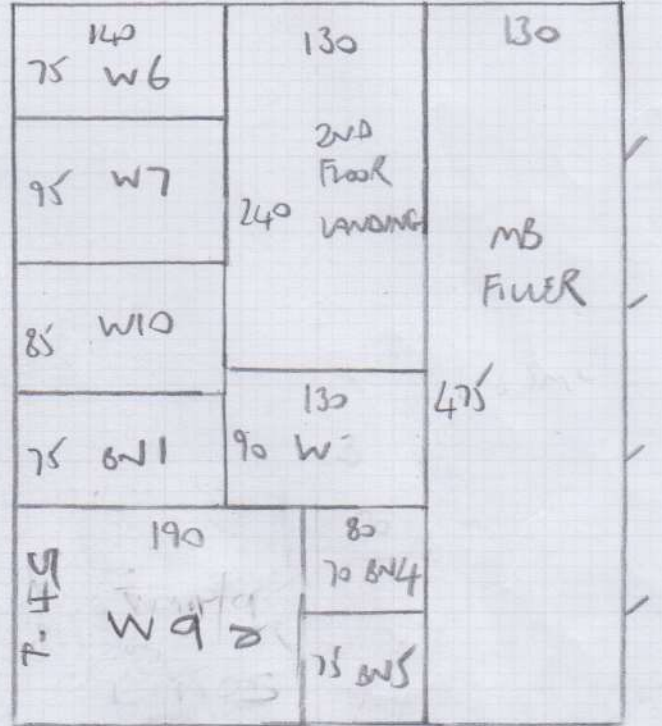 140
75 W6
95 W7
85 W10
75 BN1
130
2ND
FLOOR
240 LANDING
130
90 W
130
MB
FILLER
475
190
W9
80
70 BN4
75 BN5